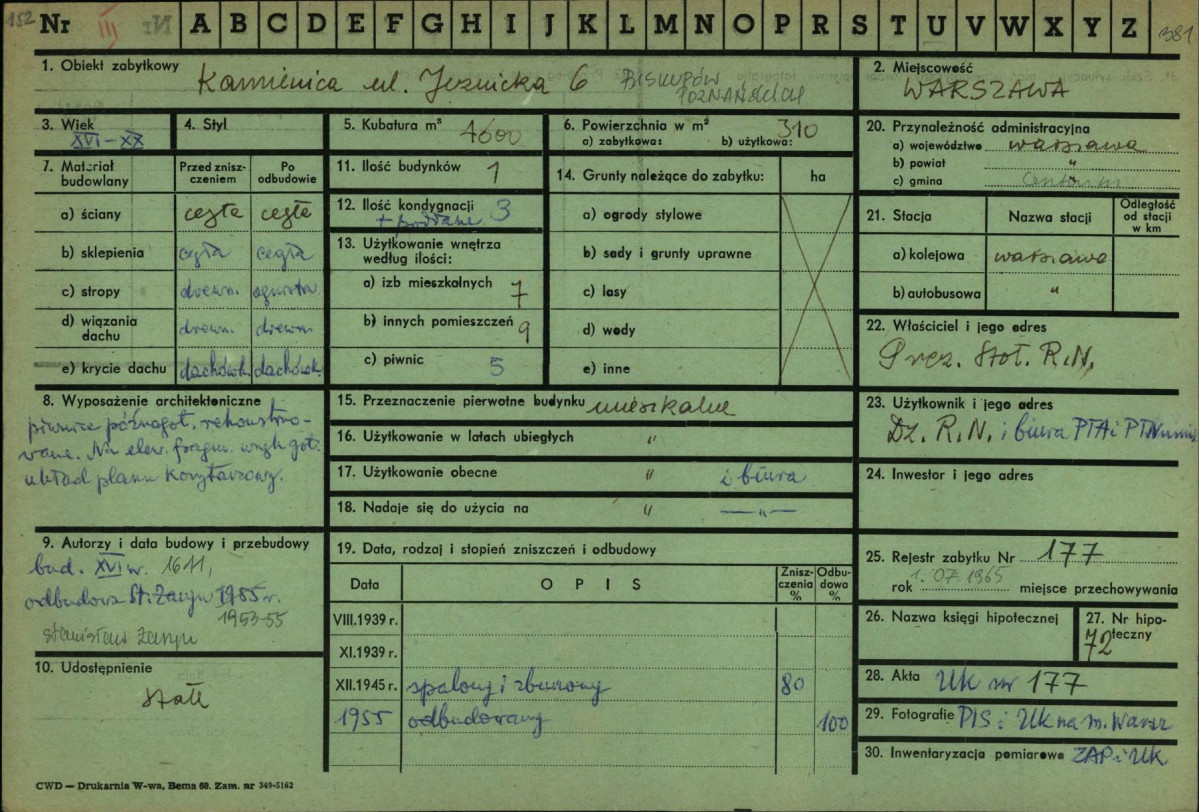 152
Nr III A B C D E F G H I J K L M N O P R S T U V W X Y Z 381
1. Obiekt zabytkowy Kamienica ul. Jezuicka 6 BISKUPÓW
POZNAŃSKICH
2. Miejscowość
WARSZAWA
3. Wiek
XVI–XX
4. Styl
5. Kubatura m³ 4600
6. Powierzchnia w m² 310
a) zabytkowa: b) użytkowa:
20. Przynależność administracyjna
a) województwo warszawa
b) powiat "
c) gmina
7. Materiał budowlany
Przed zniszczeniem
Po odbudowie
a) ściany cegła cegła
b) sklepienia cegła cegła
c) stropy drewn. ogniotrw.
d) wiązania dachu drewn. drewn.
e) krycie dachu dachówk. dachówk.
11. Ilość budynków 1
12. Ilość kondygnacji 3
+ poddasze
13. Użytkowanie wnętrza
według ilości:
a) izb mieszkalnych 7
b) innych pomieszczeń 9
c) piwnic 5
14. Grunty należące do zabytku: ha
a) ogrody stylowe
b) sady i grunty uprawne
c) lasy
d) wody
e) inne
21. Stacja Nazwa stacji Odległość od stacji w km
a) kolejowa warszawa
b) autobusowa "
22. Właściciel i jego adres
Prez. Stoł. R.N.
8. Wyposażenie architektoniczne
piwnice późnogot. rekonstruo-
wane. Na elew. fragm. wnęk got.
układ planu korytarzowy.
15. Przeznaczenie pierwotne budynku mieszkalne
16. Użytkowanie w latach ubiegłych "
17. Użytkowanie obecne " i biura
18. Nadaje się do użycia na " —"—
23. Użytkownik i jego adres
Dz. R.N. i biura PTA i PTNumis
24. Inwestor i jego adres
9. Autorzy i data budowy i przebudowy
bud. XVI w. 1611,
odbudowa St. Żaryn 1955 r.
1953-55
Stanisław Żaryn
10. Udostępnienie
stałe
19. Data, rodzaj i stopień zniszczeń i odbudowy
Data OPIS Zniszczenia % Odbudowa %
VIII.1939 r.
XI.1939 r.
XII.1945 r. spalony i zburzony 80
1955 odbudowany 100
25. Rejestr zabytku Nr 177
rok 1. 07. 1965 miejsce przechowywania
26. Nazwa księgi hipotecznej
27. Nr hipo-
teczny
72
28. Akta UK nr 177
29. Fotografie PIS i UK na m. Warsz
30. Inwentaryzacja pomiarowa ZAP i UK
CWD — Drukarnia W-wa, Bema 60. Zam. nr 349-5162